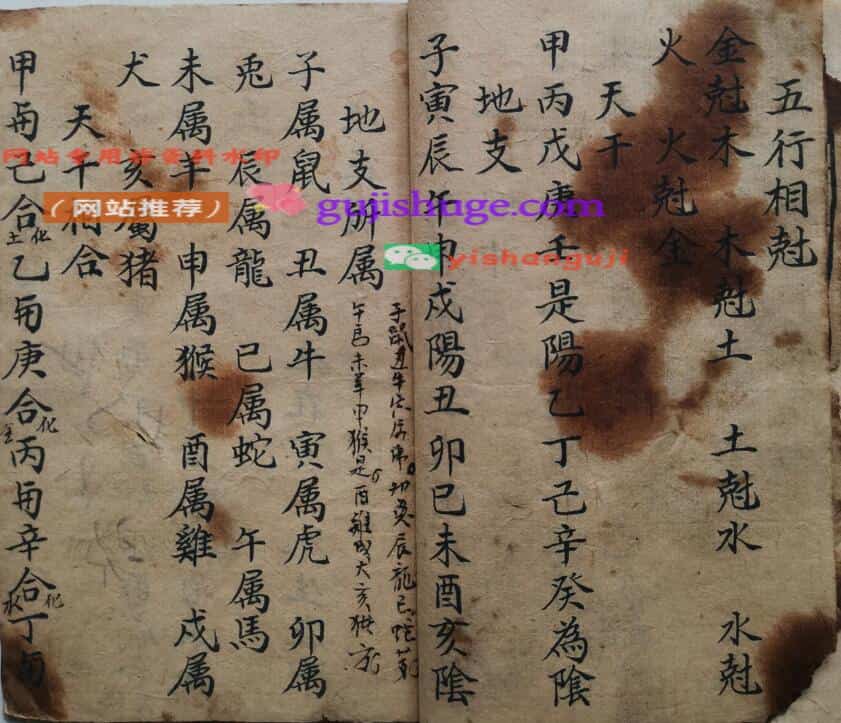 五行相尅
金尅木　木尅土　土尅水　水尅
火　火尅金
天干
甲丙戊庚壬是陽乙丁己辛癸為陰
地支
子寅辰午申戍陽丑卯巳未酉亥陰
子鼠丑牛 卯兎辰龍巳蛇
午馬未羊申猴是酉雞 犬亥
地支所属
子属鼠　丑属牛　寅属虎　卯属
兎　辰属龍　巳属蛇　午属馬
未属羊　申属猴　酉属雞　戍属
犬　亥属猪
天干相合
甲与己合化土乙与庚合化金丙与辛合化水丁与
网站专用 水印
(网站推荐)
gujishuge.com
yishanguji